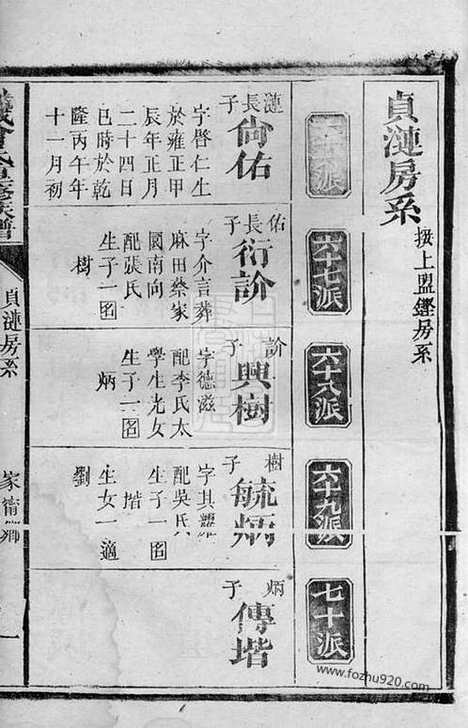 貞漣房系
按上盟鏗房系
六十七派
六十八派
六十九派
七十派
漣長子
尚佑
字啓仁生
於雍正甲
辰年正月
二十四日
巳時於乾
隆丙午年
十一月初
佑長子
衍訜
字介言葬
麻田蔡家
園南向
配張氏
生子一名
樹
訜子
興樹
字德滋
配李氏太
學生光女
生子一名
炳
樹子
毓炳
字其耀
配吳氏
生子一名
堦
生女一適
劉
炳子
傳堦
氏
族譜
貞漣房系
一
www.fozhu920.com